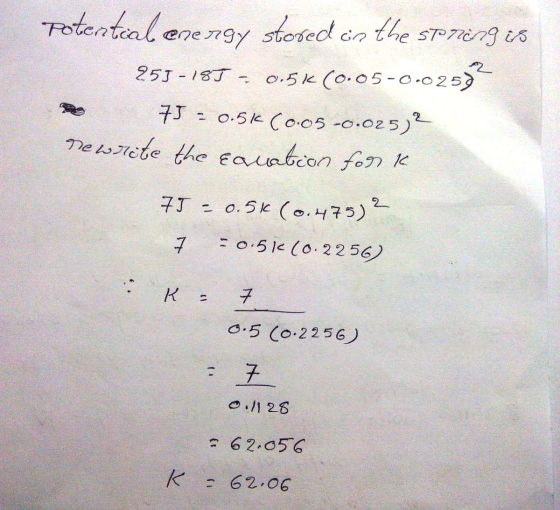 Potential energy stored in the spring is
25J - 18J = 0.5k (0.05 - 0.025)²
7J = 0.5k (0.05 - 0.025)²
rewrite the equation for k
7J = 0.5k (0.475)²
7 = 0.5k (0.2256)
∴ K = 7
0.5 (0.2256)
= 7
0.1128
= 62.056
K = 62.06